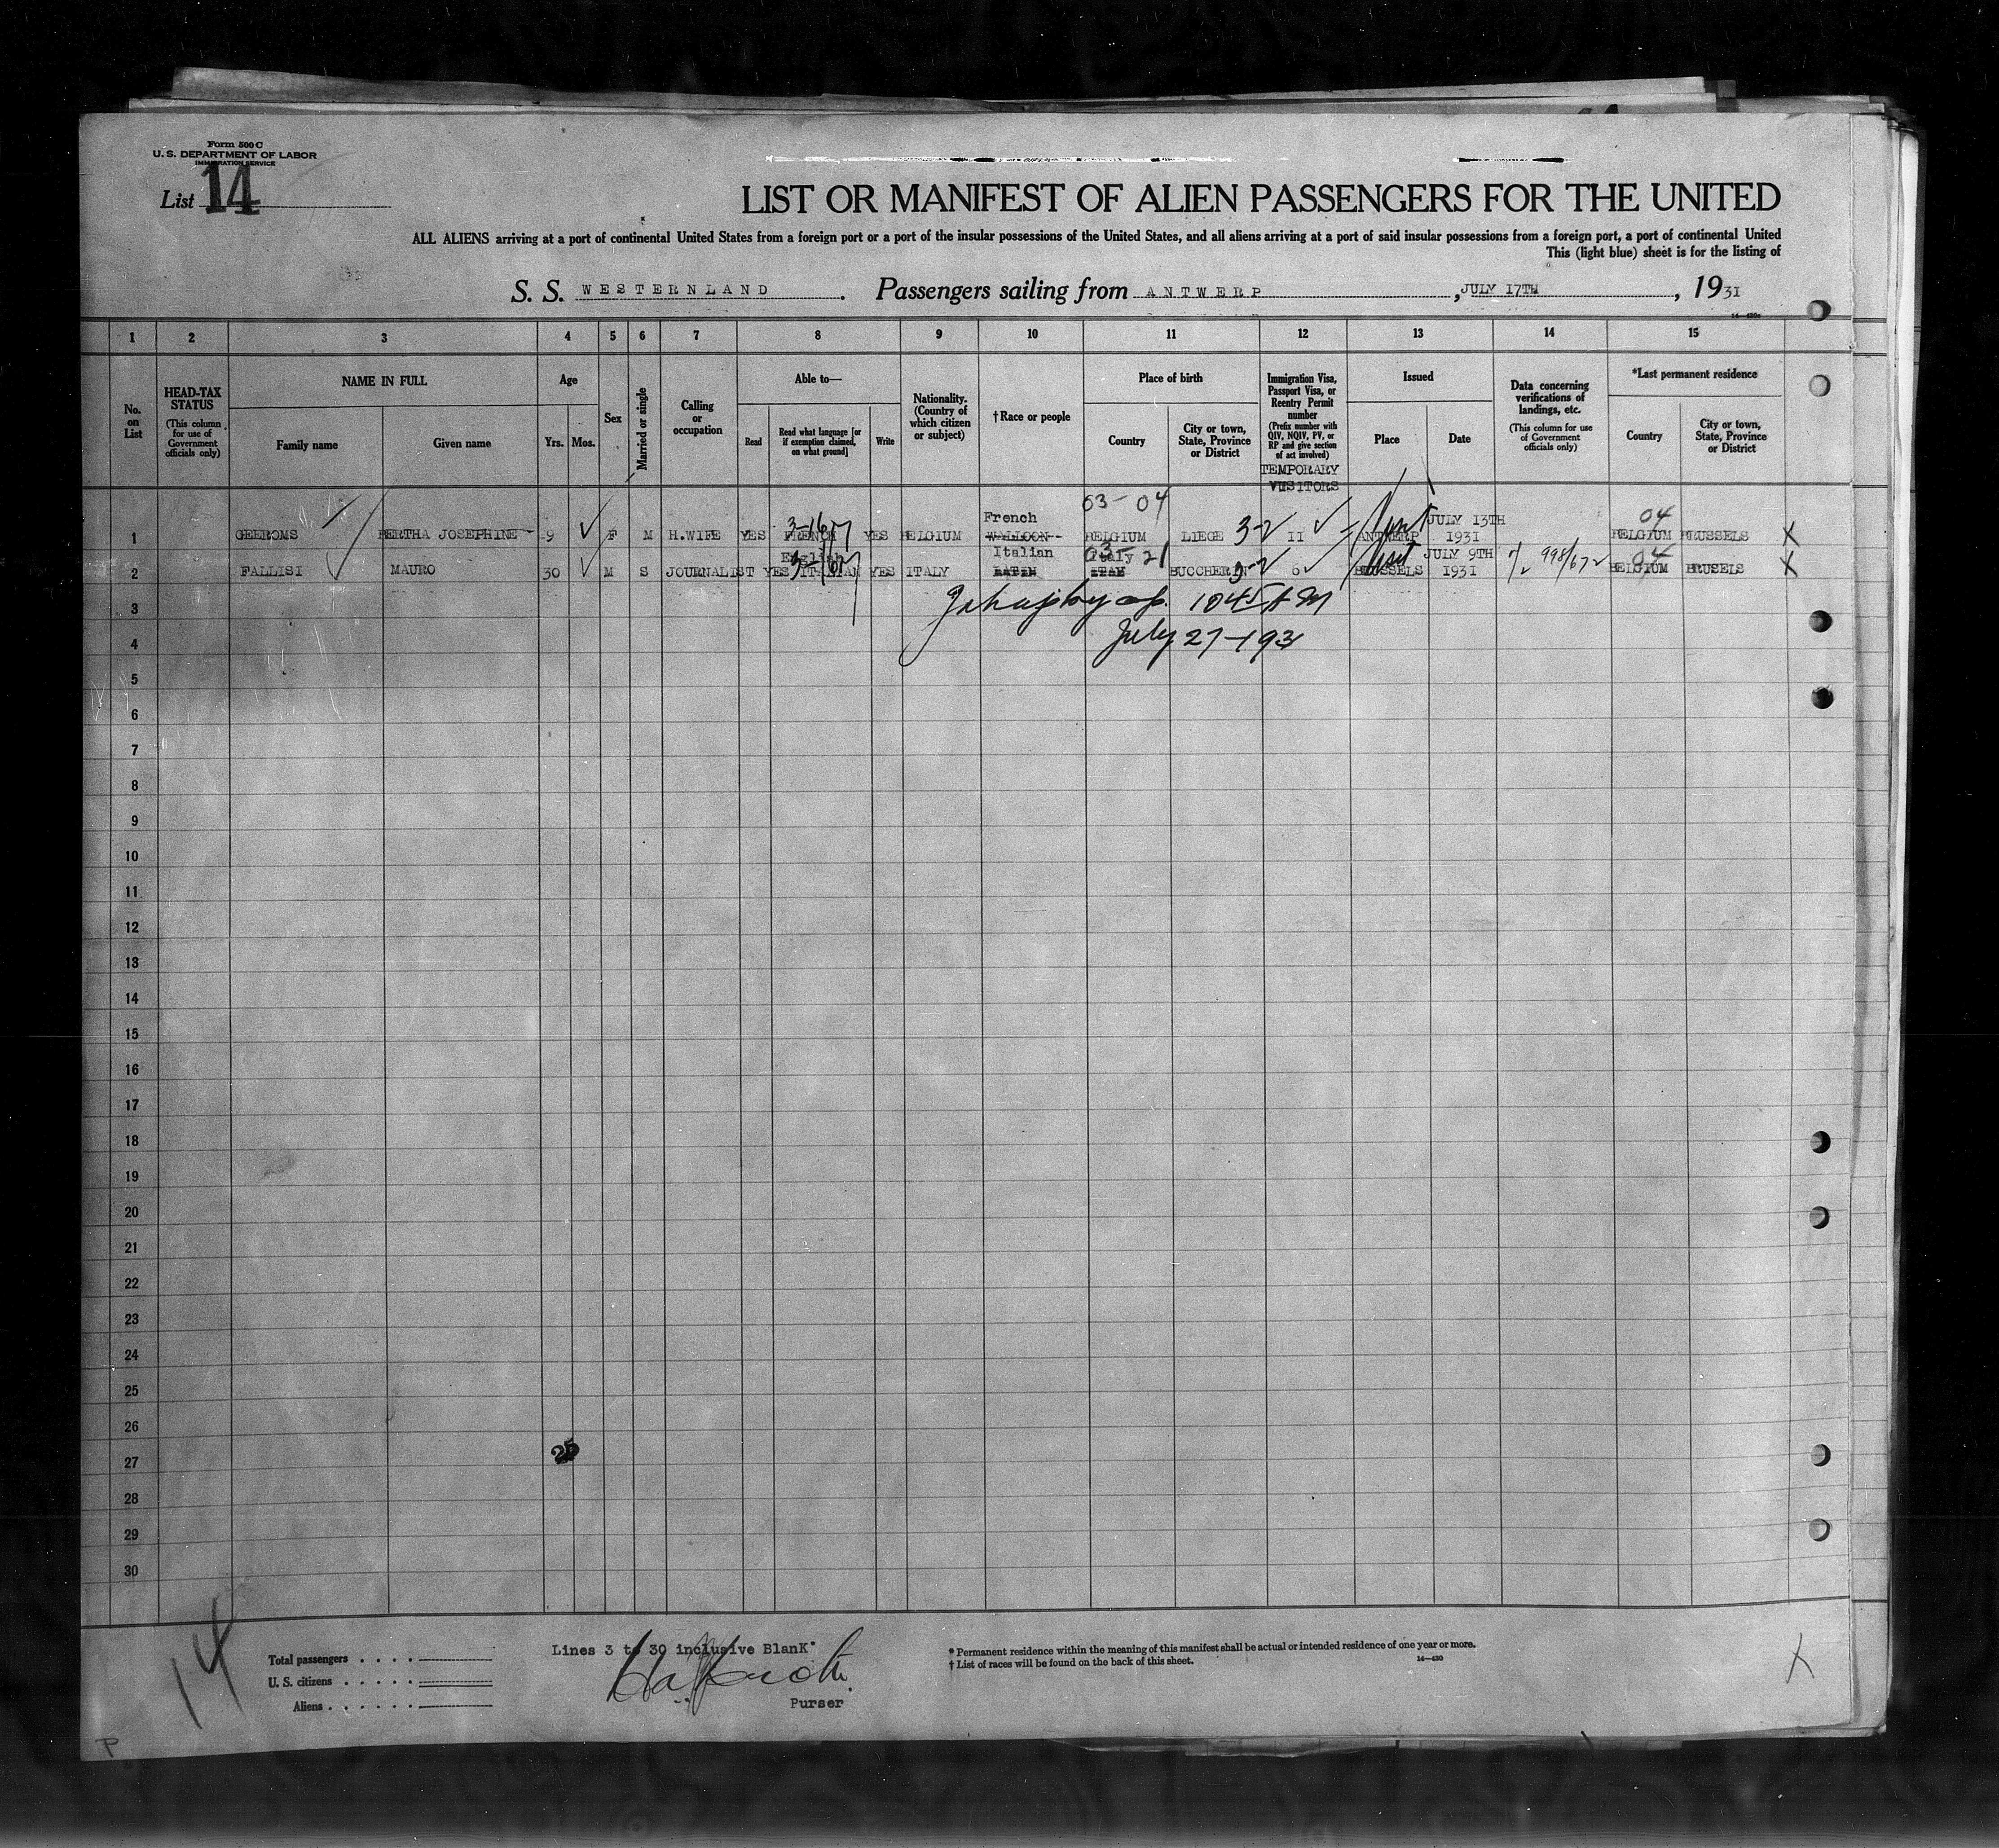 Form 500 C
U. S. DEPARTMENT OF LABOR
IMMIGRATION SERVICE
List 14
LIST OR MANIFEST OF ALIEN PASSENGERS FOR THE UNITED
ALL ALIENS arriving at a port of continental United States from a foreign port or a port of the insular possessions of the United States, and all aliens arriving at a port of said insular possessions from a foreign port, a port of continental United
This (light blue) sheet is for the listing of
S. S. WESTERNLAND. Passengers sailing from ANTWERP, JULY 17TH, 1931
1 2 3 4 5 6 7 8 9 10 11 12 13 14 15
No. on List
HEAD-TAX STATUS
(This column for use of Government officials only)
NAME IN FULL
Family name Given name
Age
Yrs. Mos.
Sex
Married or single
Calling or occupation
Able to—
Read
Read what language [or if exemption claimed, on what ground]
Write
Nationality. (Country of which citizen or subject)
†Race or people
Place of birth
Country
City or town, State, Province or District
Immigration Visa, Passport Visa, or Reentry Permit number
(Prefix number with QIV, NQIV, PV, or RP and give section of act involved)
TEMPORARY
VISITORS
Issued
Place Date
Data concerning verifications of landings, etc.
(This column for use of Government officials only)
*Last permanent residence
Country
City or town, State, Province or District
03-04
French JULY 13TH 04
1 GEEROMS BERTHA JOSEPHINE 9 F M H.WIFE YES FRENCH YES BELGIUM WALLOON BELGIUM LIEGE 3-2 II ANTWERP 1931 BELGIUM BRUSSELS X
English Italian Italy 21 JULY 9TH 998/672 04
2 FALLISI MAURO 30 M S JOURNALIST YES ITALIAN YES ITALY LATIN BUCCHERI 6 BRUSSELS 1931 BELGIUM BRUSELS X
3 1045 AM
4 July 27-1931
5
6
7
8
9
10
11
12
13
14
15
16
17
18
19
20
21
22
23
24
25
26
27
28
29
30
14
Total passengers
U. S. citizens
Aliens
Lines 3 to 30 inclusive BlanK
Purser
* Permanent residence within the meaning of this manifest shall be actual or intended residence of one year or more.
† List of races will be found on the back of this sheet.
14—430
X
P